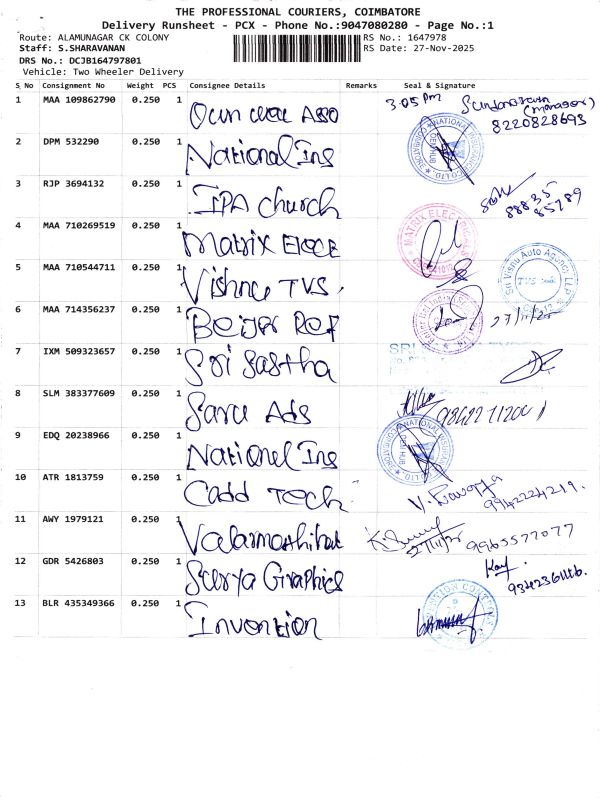 THE PROFESSIONAL COURIERS, COIMBATORE
Delivery Runsheet - PCX - Phone No.:9047080280 - Page No.:1
Route: ALAMUNAGAR CK COLONY RS No.: 1647978
Staff: S.SHARAVANAN RS Date: 27-Nov-2025
DRS No.: DCJB164797801
Vehicle: Two Wheeler Delivery
S No Consignment No Weight PCS Consignee Details Remarks Seal & Signature
1 MAA 109862790 0.250 1 Own Asso 3.05 Pm (Manager)
8220828693
2 DPM 532290 0.250 1 National Ins
3 RJP 3694132 0.250 1 IPA Church 88835
85789
4 MAA 710269519 0.250 1 Matrix Elece MATRIX
5 MAA 710544711 0.250 1 Vishnu TVS Sri Vishnu Auto Agency LLP
TVS
6 MAA 714356237 0.250 1 Beijer Ref 27/11/25
7 IXM 509323657 0.250 1 Sri Sastha SRI
8 SLM 383377609 0.250 1 Saru Ads
9 EDQ 20238966 0.250 1 National Ins
10 ATR 1813759 0.250 1 Cadd Tech 9942224219.
11 AWY 1979121 0.250 1 27/11/25 9965577077
12 GDR 5426803 0.250 1 Surya Graphics
13 BLR 435349366 0.250 1 Invention